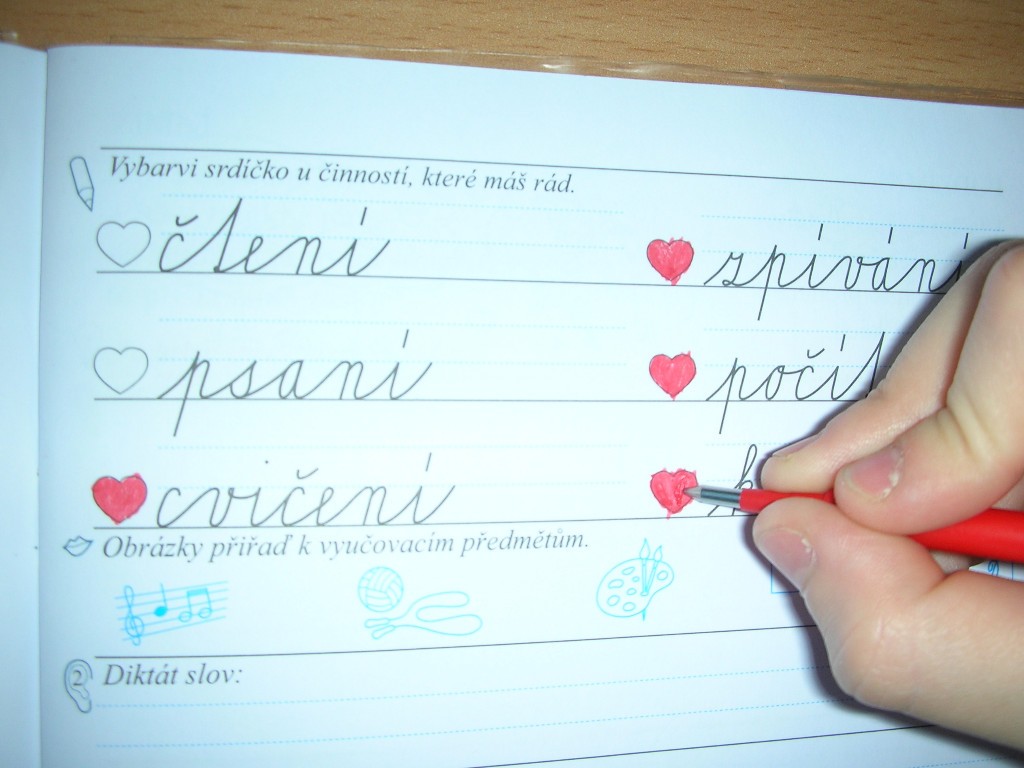 Vybarvi srdíčko u činností, které máš rád.
čtení zpívání
psaní
cvičení
Obrázky přiřaď k vyučovacím předmětům.
2 Diktát slov: